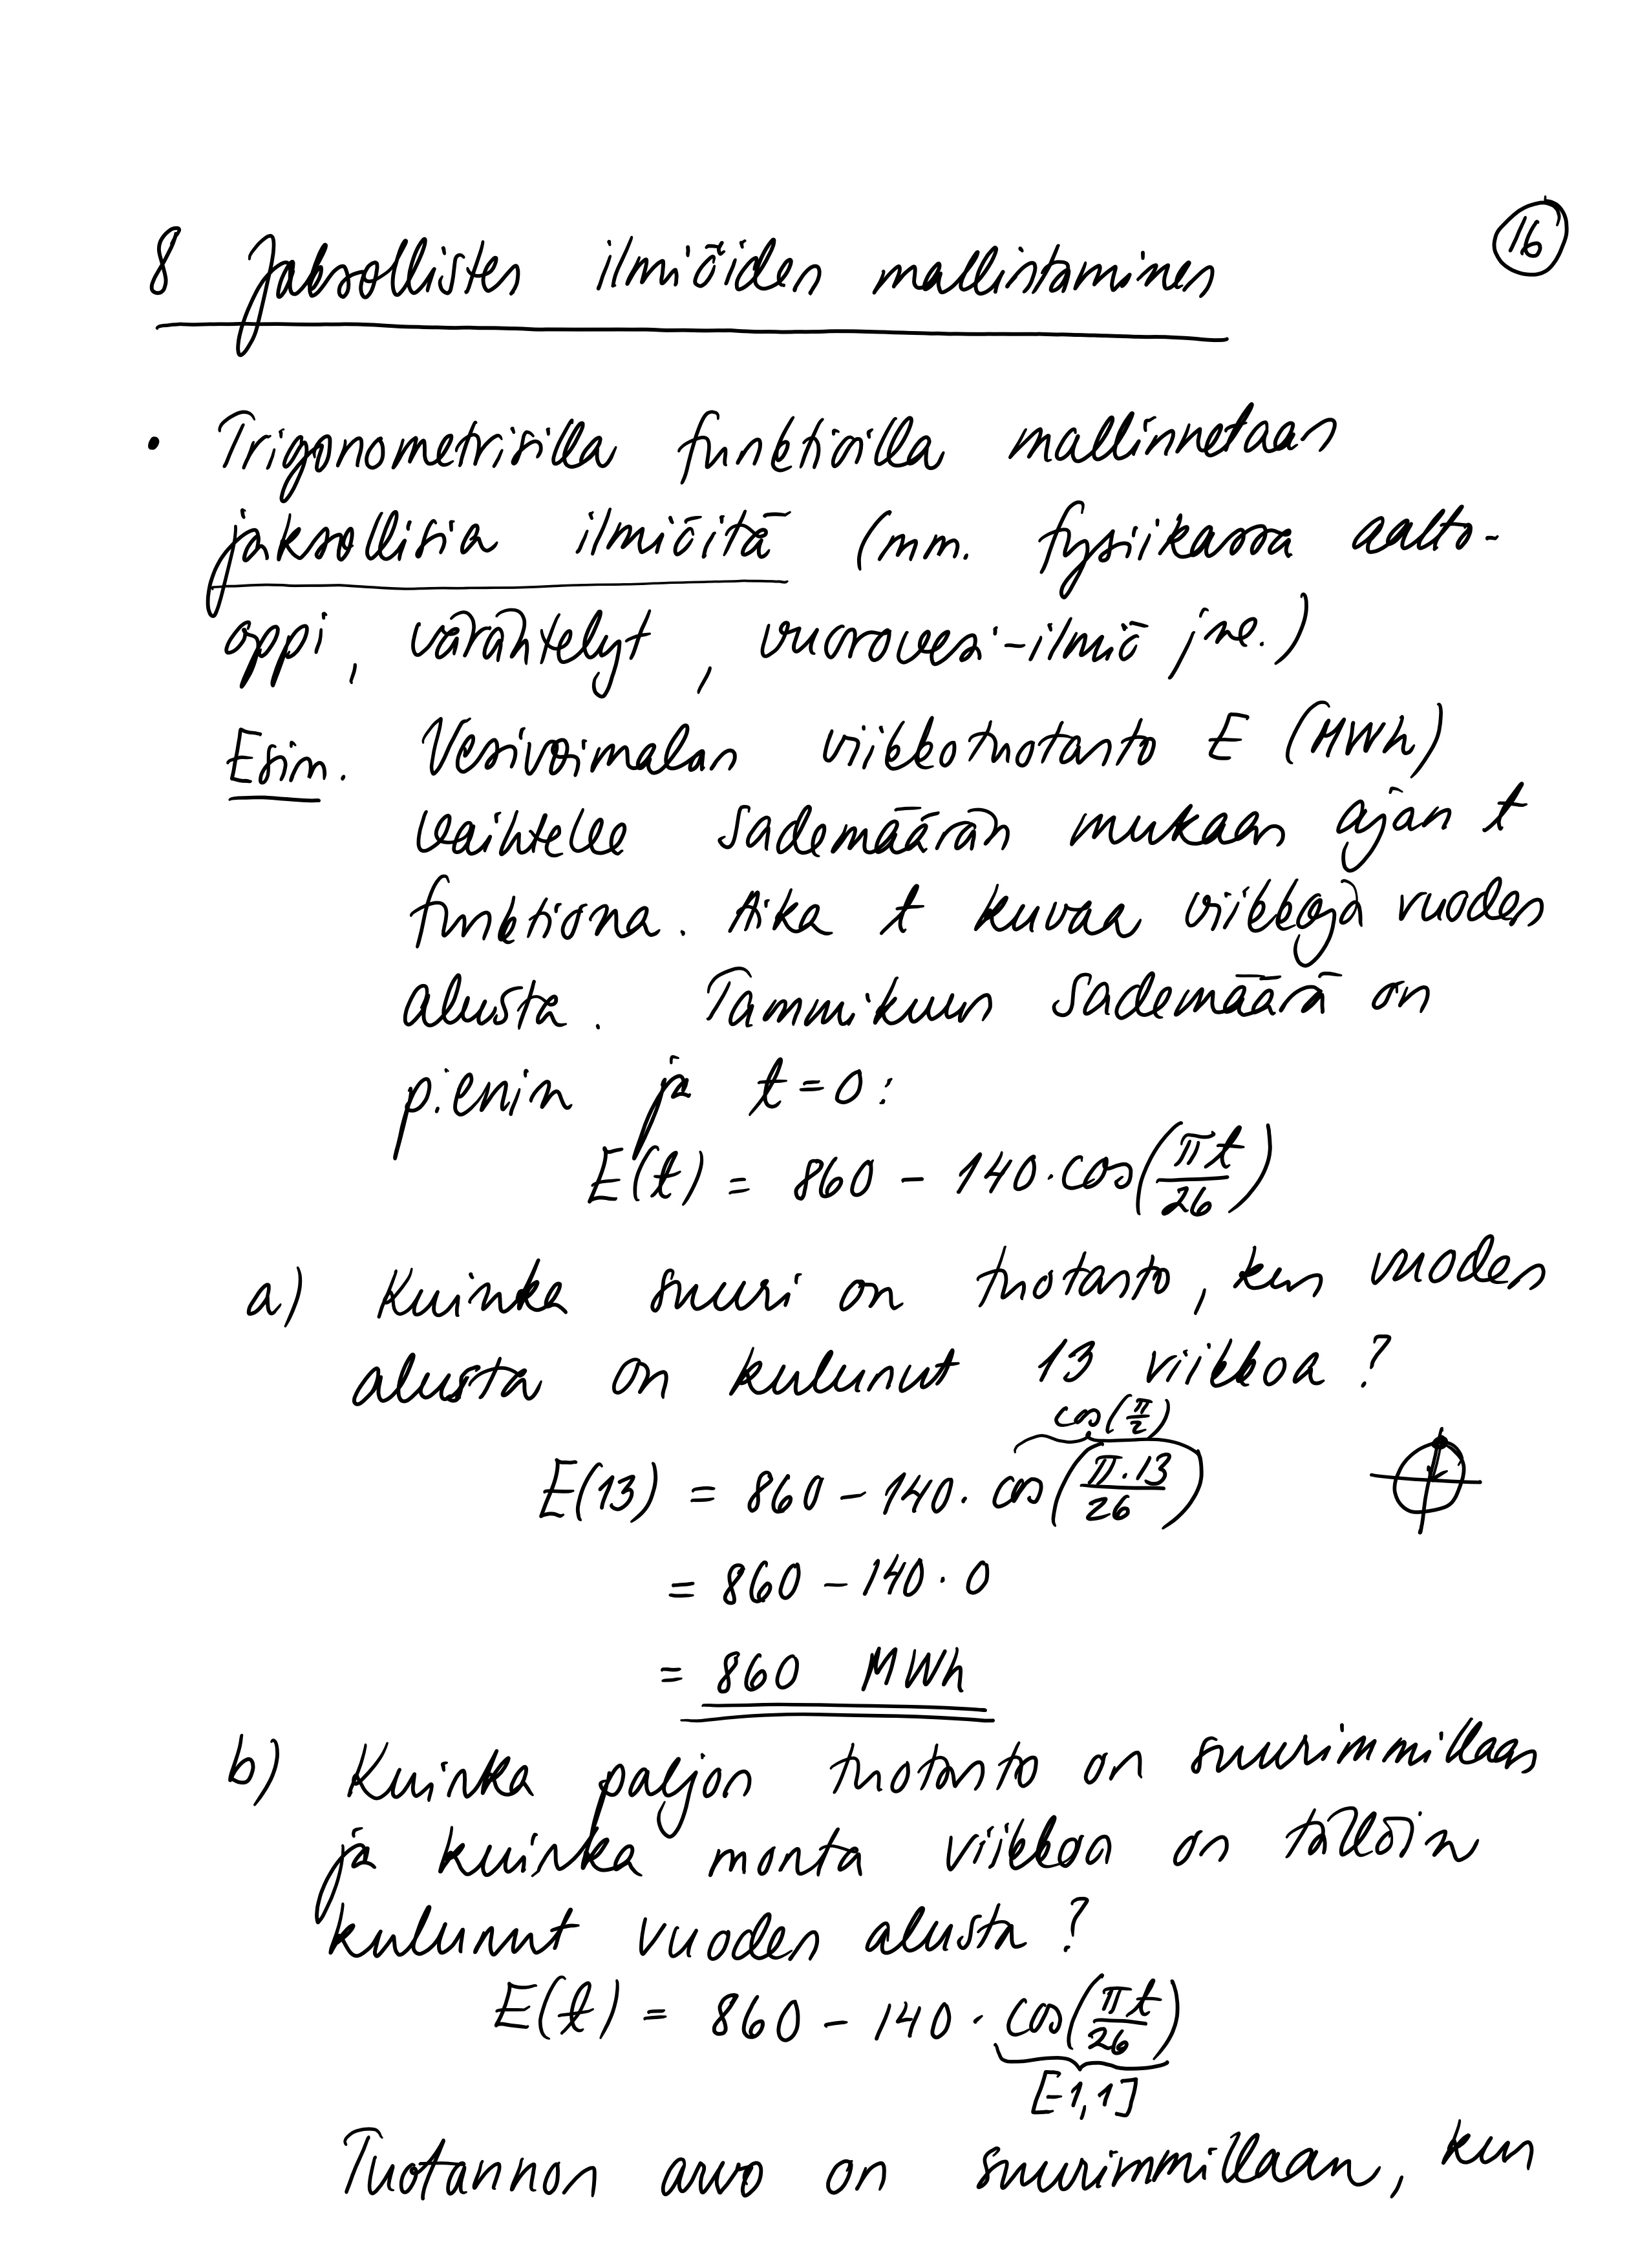 16
8 Jaksollisten ilmiöiden mallintaminen
• Trigonometrisilla funktioilla mallinnetaan
jaksollisia ilmiöitä (mm. fysiikassa aalto-
oppi, värähtelyt, vuorovesi-ilmiö jne.)
Esim. Vesivoimalan viikkotuotanto E (MWh)
vaihtelee sademäärän mukaan ajan t
funktiona. Aika t kuvaa viikkoja vuoden
alusta. Tammikuun sademäärä on
pienin ja t = 0:
E(t) = 860 - 140·cos(πt/26)
a) Kuinka suuri on tuotanto, kun vuoden
alusta on kulunut 13 viikkoa?
cos(π/2)
E(13) = 860 - 140·cos(π·13/26)
= 860 - 140·0
= 860 MWh
b) Kuinka paljon tuotanto on suurimmillaan
ja kuinka monta viikkoa on tällöin
kulunut vuoden alusta?
E(t) = 860 - 140·cos(πt/26)
[-1,1]
Tuotannon arvo on suurimmillaan, kun